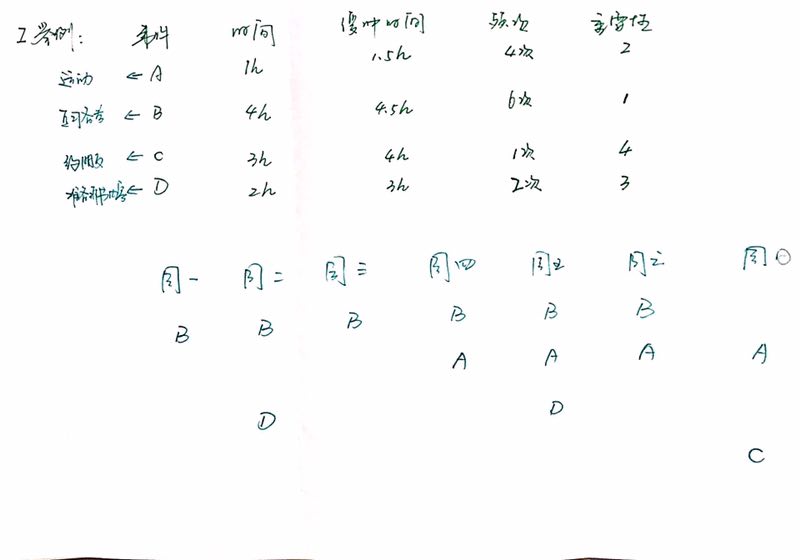 举例: 条件 时间 缓冲时间 频次 重要性
运动 ← A 1h 1.5h 4次 2
← B 4h 4.5h 6次 1
约朋友 ← C 3h 4h 1次 4
← D 2h 3h 2次 3
周一 周二 周三 周四 周五 周六 周日
B B B B B B
A A A A
D D
C